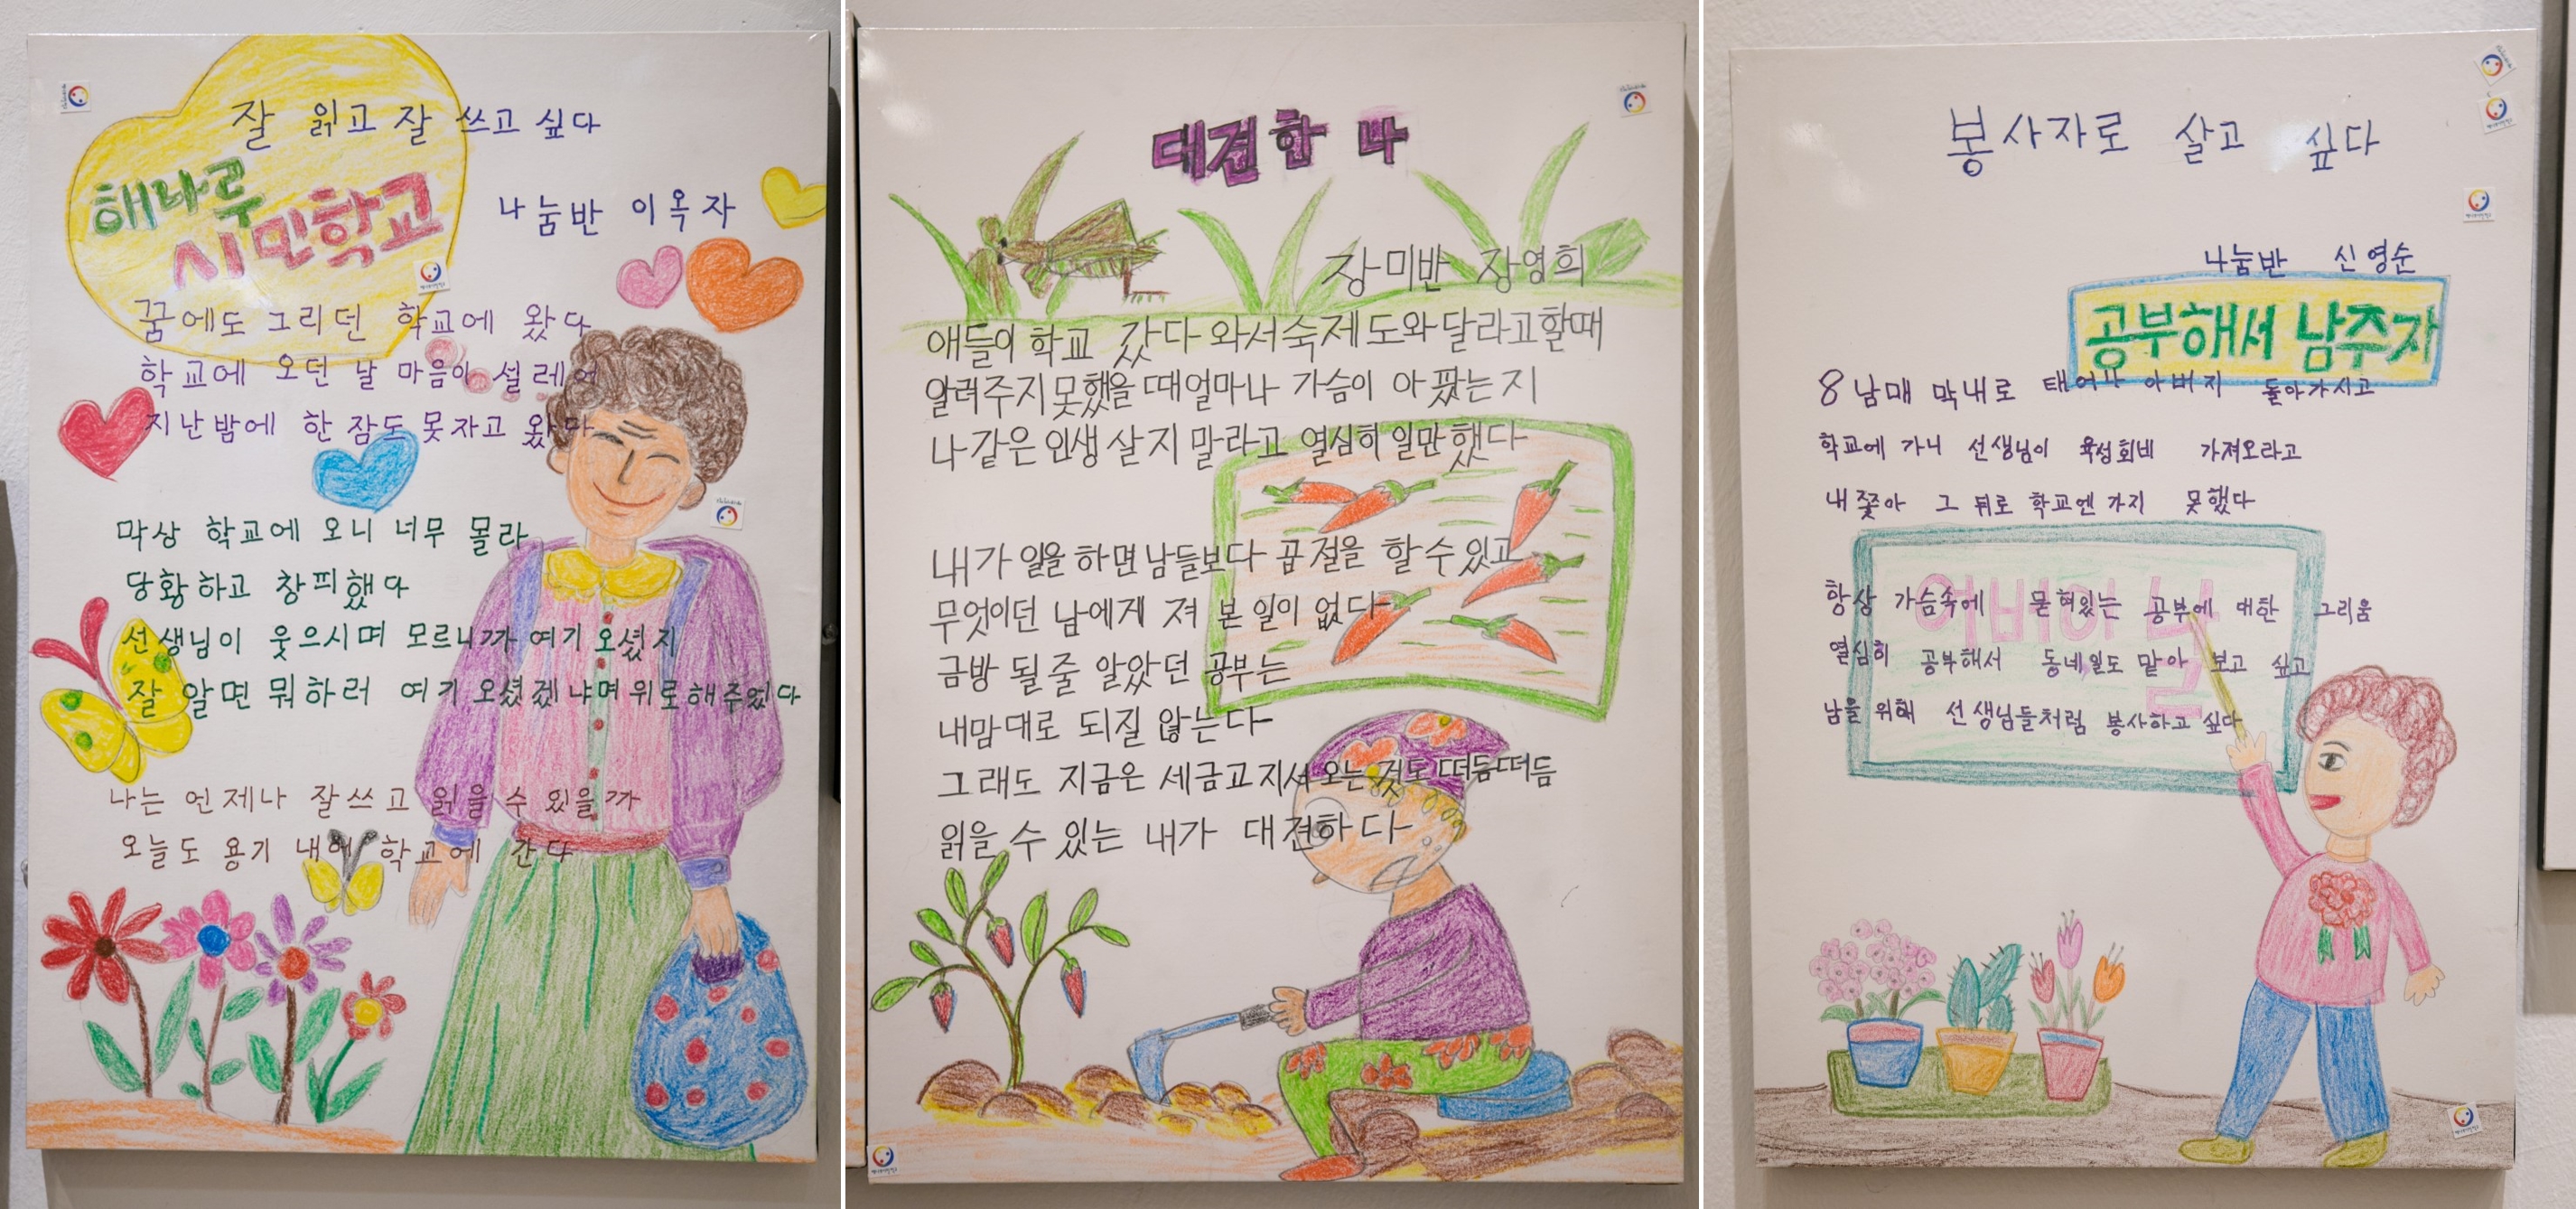 잘 읽고 잘 쓰고 싶다
해나루
시민학교
나눔반 이옥자
꿈에도 그리던 학교에 왔다
학교에 오던 날 마음이 설레어
지난밤에 한 잠도 못자고 왔다
막상 학교에 오니 너무 몰라
당황하고 창피했다
선생님이 웃으시며 모르니까 여기 오셨지
잘 알면 뭐하러 여기 오셨겠냐며 위로해주었다
나는 언제나 잘쓰고 읽을 수 있을까
오늘도 용기 내어 학교에 간다
대견한 나
장미반 장영희
애들이 학교 갔다 와서 숙제 도와달라고할때
알려주지 못했을 때 얼마나 가슴이 아팠는지
나 같은 인생 살지 말라고 열심히 일만 했다
내가 일을 하면 남들보다 곱절을 할 수 있고
무엇이던 남에게 져 본 일이 없다
금방 될 줄 알았던 공부는
내맘대로 되질 않는다
그래도 지금은 세금고지서 오는 것도 떠듬떠듬
읽을 수 있는 내가 대견하다
봉사자로 살고 싶다
나눔반 신영순
공부해서 남주자
8남매 막내로 태어나 아버지 돌아가시고
학교에 가니 선생님이 육성회비 가져오라고
내쫓아 그 뒤로 학교엔 가지 못했다
항상 가슴속에 묻혀있는 공부에 대한 그리움
열심히 공부해서 동네일도 맡아 보고 싶고
남을 위해 선생님들처럼 봉사하고 싶다